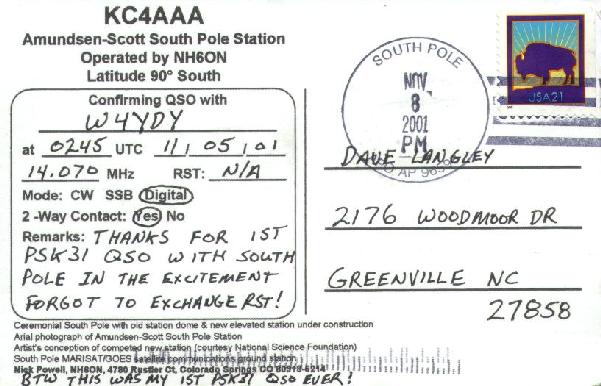 KC4AAA
Amundsen-Scott South Pole Station
Operated by NH6ON
Latitude 90° South
Confirming QSO with
W4YDY
at 0245 UTC 11/05/01
14.070 MHz RST: N/A
Mode: CW SSB Digital
2 -Way Contact: Yes No
Remarks: THANKS FOR 1ST
PSK31 QSO WITH SOUTH
POLE IN THE EXCITEMENT
FORGOT TO EXCHANGE RST!
Ceremonial South Pole with old station dome & new elevated station under construction
Arial photograph of Amundsen-Scott South Pole Station
Artist's conception of competed new station (courtesy National Science Foundation)
South Pole MARISAT/GOES satellite communications ground station
Nick Powell, NH6ON, 4780 Rustler Ct, Colorado Springs CO 80918-5214
BTW THIS WAS MY 1ST PSK31 QSO EVER!
SOUTH POLE
NOV
8
2001
PM
AP
USA21
DAVE LANGLEY
2176 WOODMOOR DR
GREENVILLE NC
27858